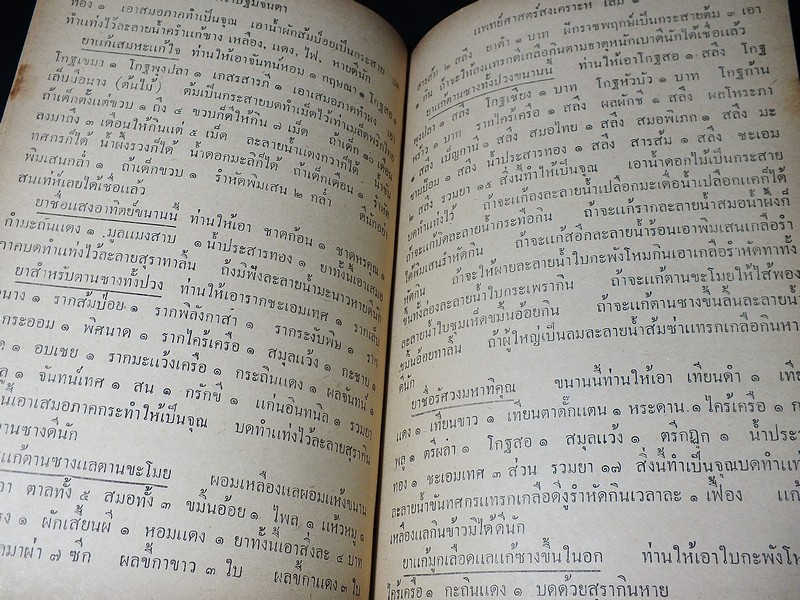 ทอง ๑ เอาสมอภาคทำเป็นจุณ เอาน้ำผักส้มป่อยเป็นกระสาย
ทำแท่งไว้ละลายน้ำครำแกซาง เหลือง, แดง, ไฟ, หายดีนัก
ยาแก้เสมหะแก้ไข้ ท่านให้เอาจันทน์หอม ๑ กฤษณา ๑ โกฐสอ ๑
โกฐเขมา ๑ โกฐพุงปลา ๑ เกสรสารภี ๑ เอาเสมอภาคทำผง เอา
เล็บมือนาง (ต้นไม้) ต้มเป็นกระสายบดทำเม็ดไว้เท่าเมล็ดพริกไทย
ถ้าเด็กตั้งแต่ขวบ ๑ ถึง ๔ ขวบก็ดีให้กิน ๗ เม็ด ถ้าเด็ก ๑๐ เดือน
ลงมาถึง ๓ เดือนให้กินแต่ ๕ เม็ด ละลายน้ำแตงกวาก็ได้ น้ำขัน
ทศกรก็ได้ น้ำผึ้งรวงก็ได้ น้ำดอกมะลิก็ได้ ถ้าเด็กเดือน ๑ รำหัด
พิมเสนกล่ำ ๑ ถ้าเด็กขวบ ๑ รำหัดพิมเสน ๒ กล่ำ ดีนักอย่า
สนเท่ห์เลยได้เชื่อแล้ว
ยาชื่อแสงอาทิตย์ขนานนี้ ท่านให้เอา ชาดก้อน ๑ ชาดหรคุณ ๑
กำมะถันแดง ๑ มูลแมงสาบ ๑ น้ำประสานทอง ๑ ยาทั้งนี้เอาเสมอ
ภาคบดทำแท่งไว้ละลายสุราทาลิ้น ถ้ามิฟังละลายน้ำมะนาวหายดีนัก
ยาสำหรับตานซางทั้งปวง ท่านให้เอารากชะเอมเทศ ๑ รากเล็บ
นาง ๑ รากส้มป่อย ๑ รากพิลังกาสา ๑ รากระงับพิษ ๑ ราก
กระออม ๑ พิศนาด ๑ รากไคร้เครือ ๑ สมุลแว้ง ๑ กะชาย ๑
๑ อบเชย ๑ รากมะแว้งเครือ ๑ กระถินแดง ๑ ผลจันทน์ ๑
๑ จันทน์เทศ ๑ สน ๑ กรักขี ๑ แก่นอินทนิล ๑ รวมยา
นี้เอาเสมอภาคกระทำให้เป็นจุณ บดทำแท่งไว้ละลายสุรากิน
ตานซางดีนัก
แก้ตานซางแลตานขะโมย ผอมเหลืองแลผอมแห้งขนาน
เอา ตาลทั้ง ๕ สมอทั้ง ๓ ขมิ้นอ้อย ๑ ไพล ๑ แห้วหมู ๑
๑ ผักเสี้ยนผี ๑ หอมแดง ๑ ยาทั้งนี้เอาสิ่งละ ๔ บาท
มาผ่า ๗ ซีก ผลขี้กาขาว ๓ ใบ ผลขี้กาแดง ๓ ใบ
แพทย์ศาสตร์สงเคราะห์ เล่ม ๑
สารส้ม ๒ สลึง ยาดำ ๑ บาท ฝักราชพฤกษ์เป็นกระสายต้ม ๓ เอา
๑ กิน ถ้าจะให้ลงแทรกดีเกลือกินตามธาตุหนักเบาดีนักได้เชื่อแล้ว
ยาแก้ตานซางทั้งปวงขนานนี้ ท่านให้เอาโกฐสอ ๑ สลึง โกฐ
พุงปลา ๑ สลึง โกฐเชียง ๑ สลึง โกฐหัวบัว ๑ บาท โกฐก้าน
พร้าว ๑ บาท รากไคร้เครือ ๑ สลึง ผลผักชี ๑ สลึง ผลโหระภา
๑ สลึง เบ็ญกานี ๑ สลึง สมอไทย ๑ สลึง สมอพิเภก ๑ สลึง มะ
ขามป้อม ๑ สลึง น้ำประสารทอง ๑ สลึง สารส้ม ๑ สลึง ชะเอม
๒ สลึง รวมยา ๑๕ สิ่งนี้ทำให้เป็นจุณ เอาน้ำดอกไม้เป็นกระสาย
บดทำแท่งไว้ ถ้าจะแก้ลงละลายน้ำเปลือกมะเดื่อน้ำเปลือกแคก็ได้
ถ้าจะแก้บิดละลายน้ำกระทือกิน ถ้าจะแก้รากละลายน้ำสมอน้ำผึ้งก็
ได้พิมเสนรำหัดกิน ถ้าจะแก้สอึกละลายน้ำร้อนเอาพิมเสนเกลือรำ
หัดกิน ถ้าจะให้ผายละลายน้ำใบกะพังโหมกินเอาเกลือรำหัดทาทั้ง
ขึ้นทั้งล่องละลายน้ำใบกระเพรากิน ถ้าจะแก้ตานขะโมยให้ไส้พอง
ละลายน้ำใบชุมเห็ดขมิ้นอ้อยกิน ถ้าจะแก้ตานซางขึ้นลิ้นละลายน้ำ
ขมิ้นอ้อยทาลิ้น ถ้าผู้ใหญ่เป็นลมละลายน้ำส้มซ่าแทรกเกลือกินหา
ดีนัก
ยาชื่อรัศวงมหาทิคุณ ขนานนี้ท่านให้เอา เทียนดำ ๑ เทีย
แดง ๑ เทียนขาว ๑ เทียนตาตั๊กแตน ๑ หระดาน ๑ ไคร้เครือ ๑ ก
พลู ๑ ตรีผล่า ๑ โกฐสอ ๑ สมุลแว้ง ๑ ตรีกฏุก ๑ น้ำประ
ทอง ๑ ชะเอมเทศ ๓ ส่วน รวมยา ๑๗ สิ่งนี้ทำเป็นจุณบดทำแท่
ละลายน้ำขันทศกรแทรกเกลือดีงูรำหัดกินเวลาละ ๑ เฟื้อง แก้
เหลืองแลกินข้าวมิได้ดีนัก
ยาแก้มูกเลือดแลแก้ซางขึ้นในอก ท่านให้เอาใบกะพังโห
ไคร้เครือ ๑ กะถินแดง ๑ บดด้วยสุรากินหาย